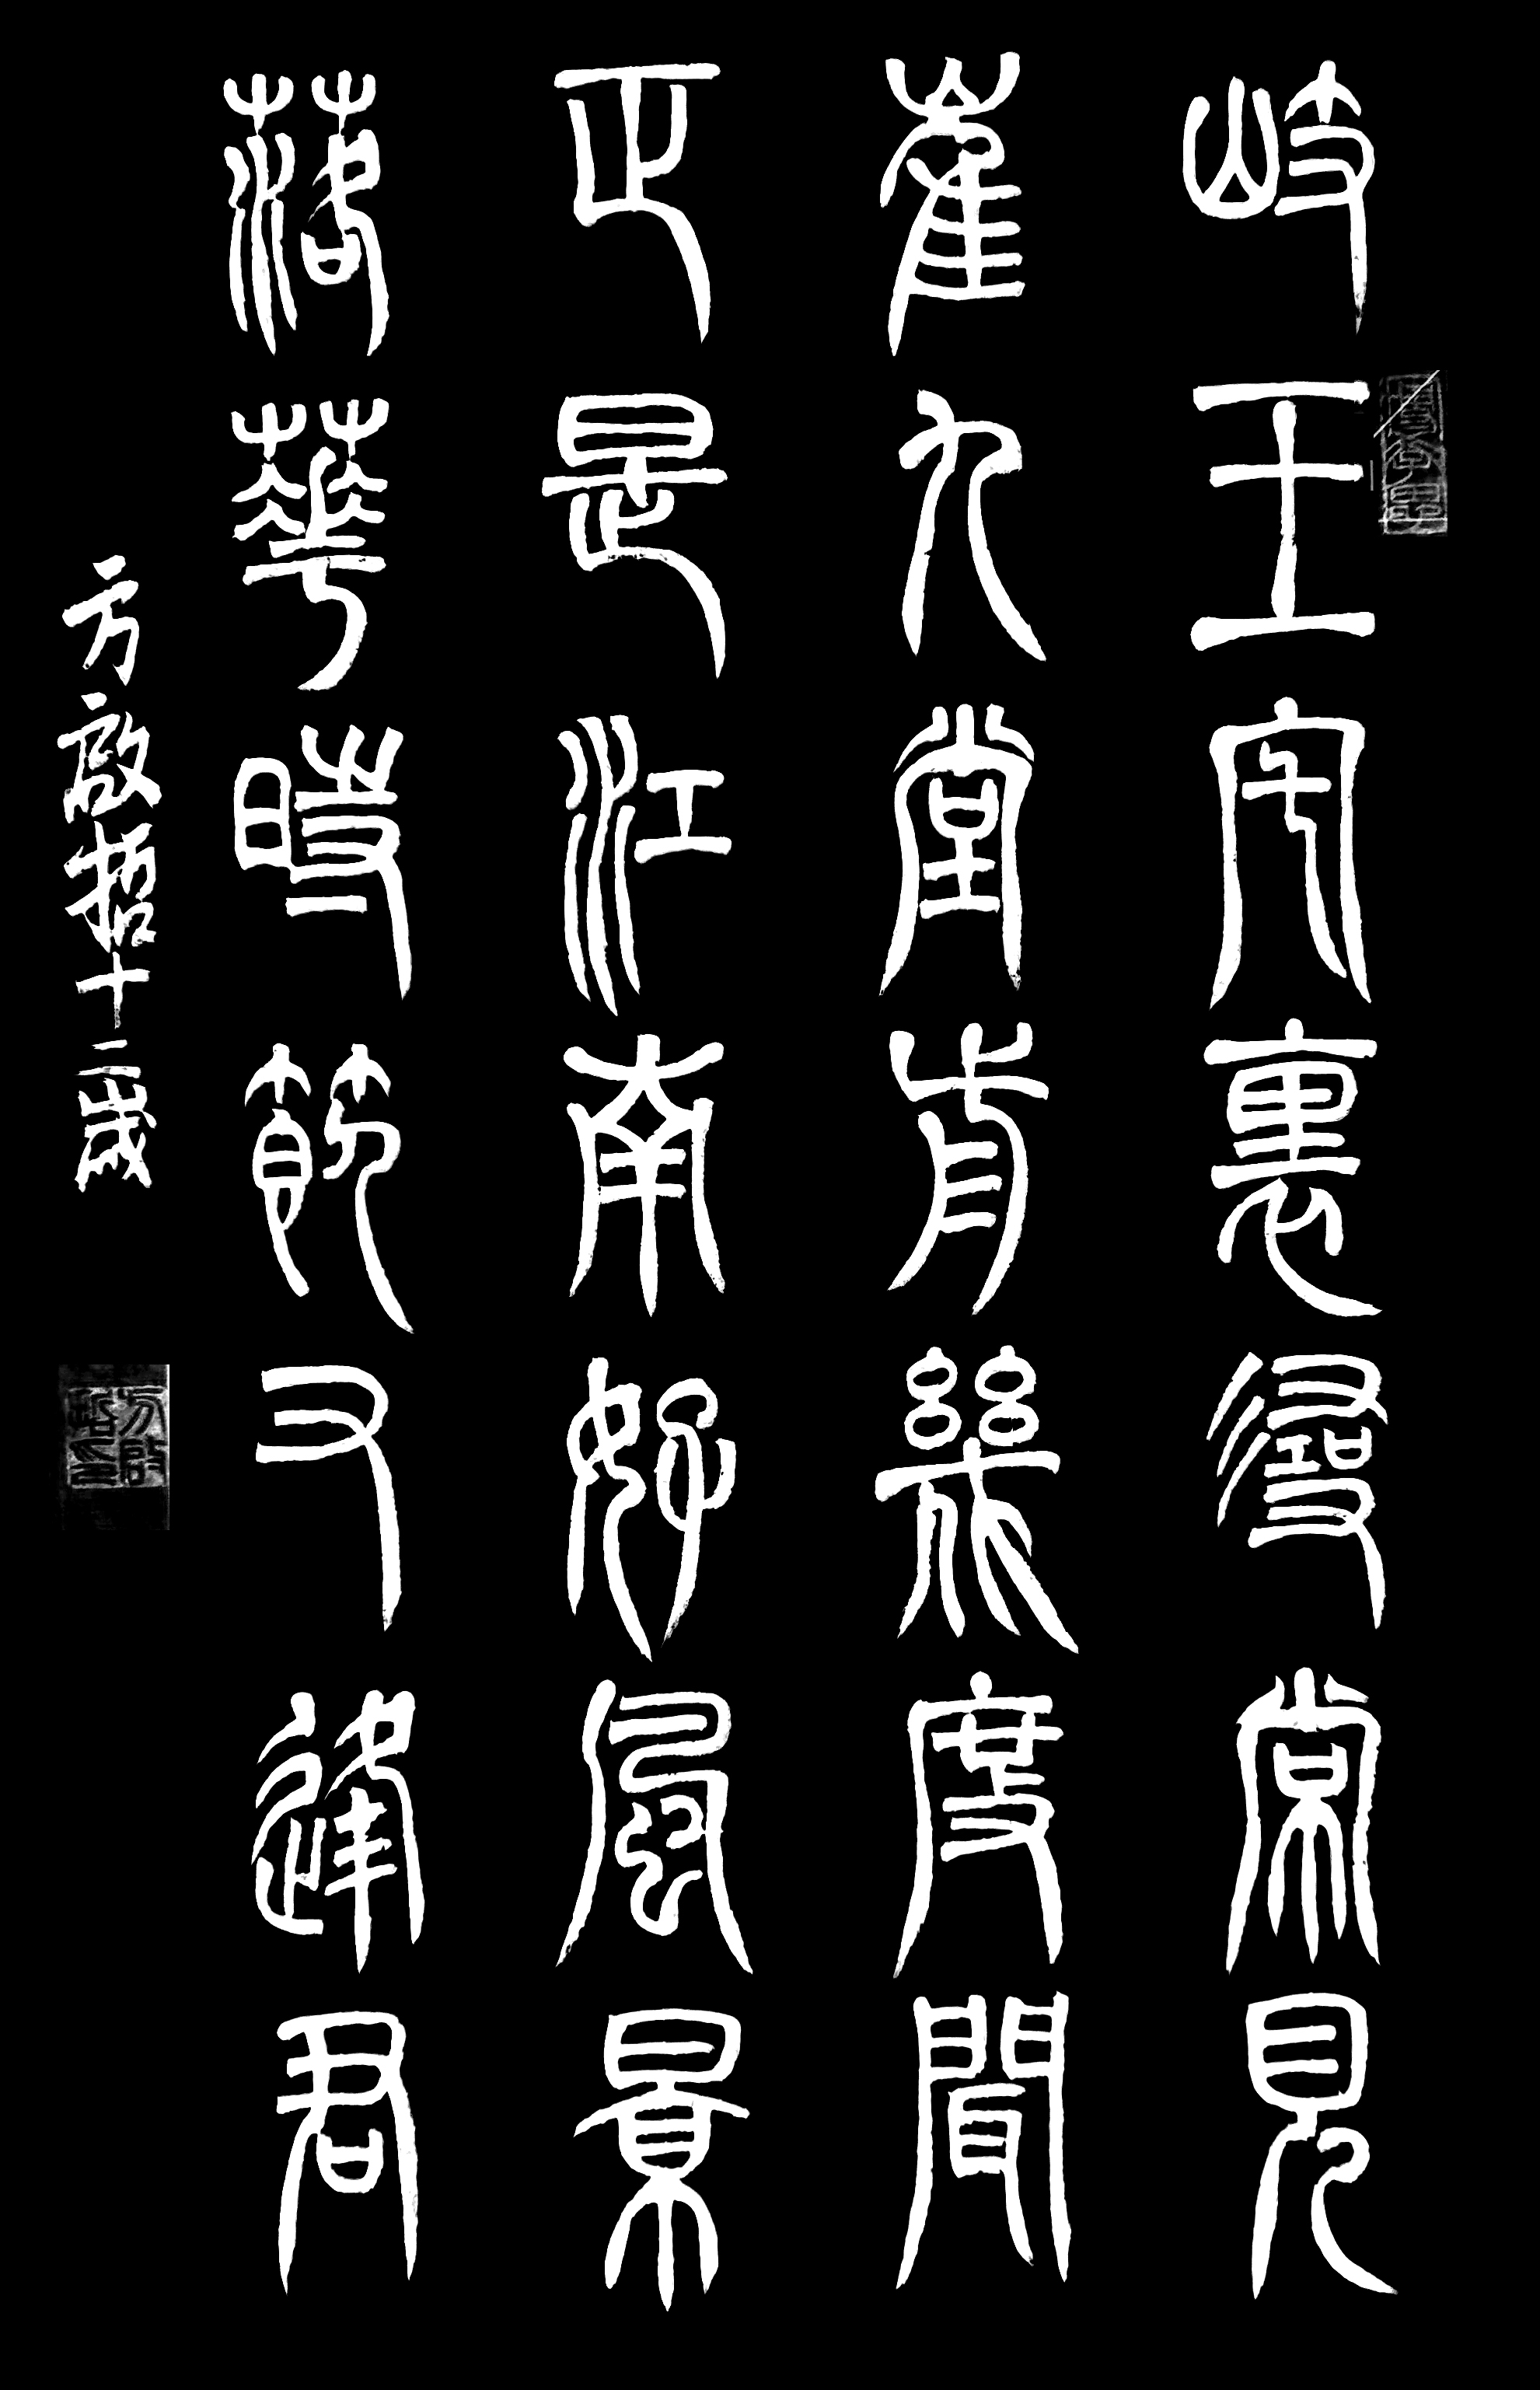 岐王宅裏尋常見
崔九堂前幾度聞
正是江南好風景
落華時節又逢君
方啟哲十二歲
方啟哲印